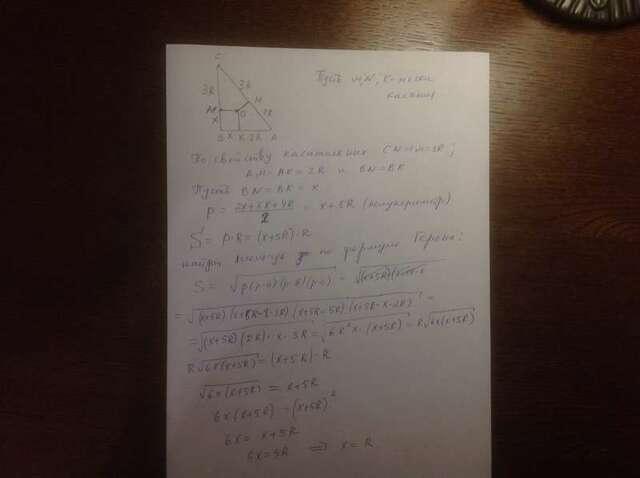 C
3R 3R
M O N
x 2R
B x K 2R A
Пусть M, N, K – точки
касания.
По свойству касательных CN = CM = 3R;
AN = AK = 2R и BN = BK
Пусть BN = BK = x
P = (2x+6R+4R)/2 = x + 5R (полупериметр)
S = P·R = (x+5R)·R
найдём площадь по формуле Герона:
S = √p(p-a)(p-b)(p-c) =
= √(x+5R)(x+5R-x-3R)(x+5R-5R)(x+5R-x-2R) =
= √(x+5R)(2R)·x·3R = √6R²x·(x+5R) = R√6x(x+5R)
R√6x(x+5R) = (x+5R)·R
√6x(x+5R) = x+5R
6x(x+5R) = (x+5R)²
6x = x+5R
6x=5R ⟹ x = R